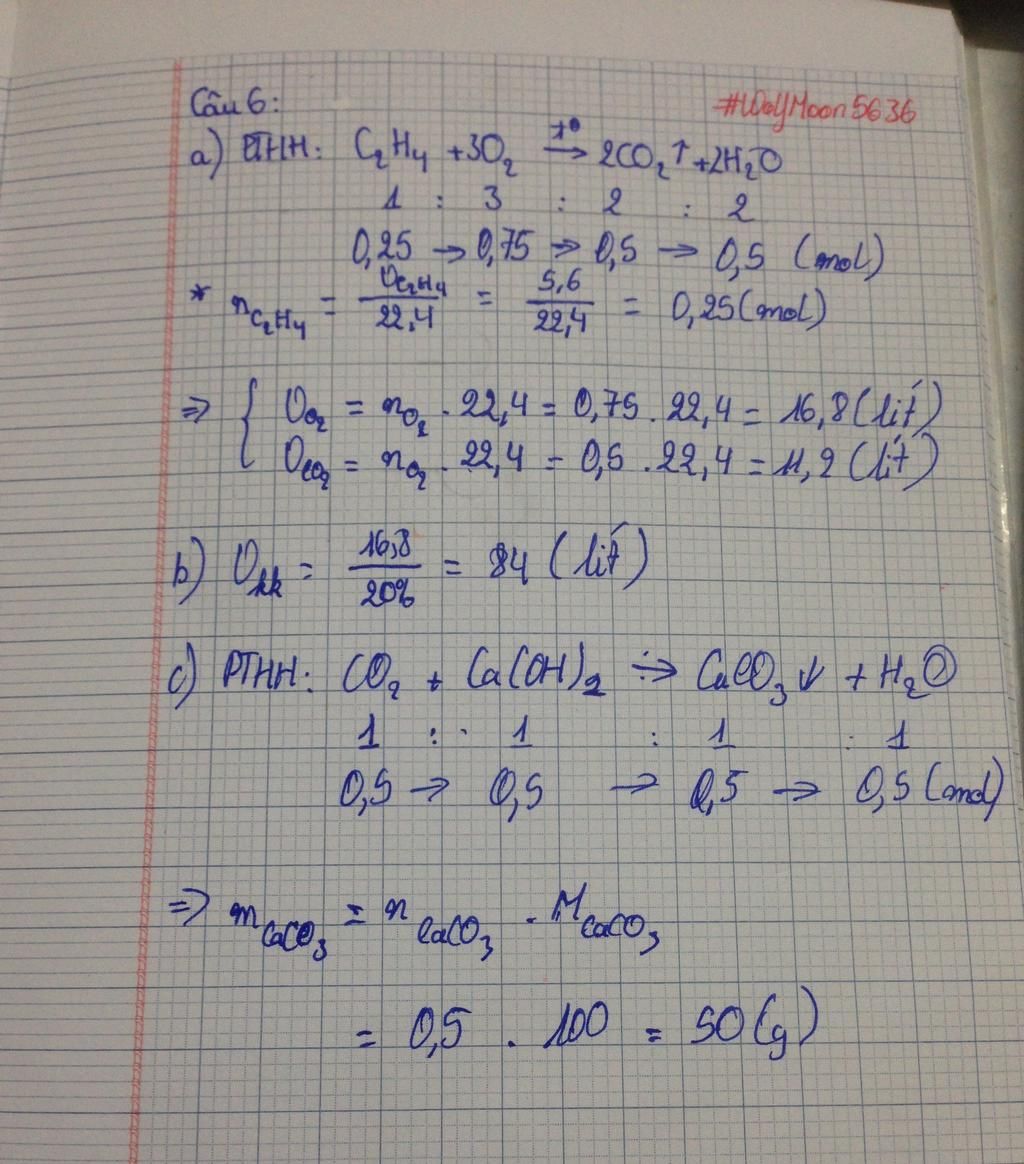 Câu 6:
#WolfMoon5636
a) PTHH: C₂H₄ + 3O₂ —t°→ 2CO₂↑ + 2H₂O
1 : 3 : 2 : 2
0,25 → 0,75 → 0,5 → 0,5 (mol)
* nC₂H₄ = VC₂H₄/22,4 = 5,6/22,4 = 0,25 (mol)
⇒ { VO₂ = nO₂ . 22,4 = 0,75 . 22,4 = 16,8 (lít)
VCO₂ = nO₂ . 22,4 = 0,5 . 22,4 = 11,2 (lít)
b) Vkk = 16,8/20% = 84 (lít)
c) PTHH: CO₂ + Ca(OH)₂ → CaCO₃↓ + H₂O
1 : 1 : 1 : 1
0,5 → 0,5 → 0,5 → 0,5 (mol)
⇒ mCaCO₃ = nCaCO₃ . MCaCO₃
= 0,5 . 100 = 50 (g)